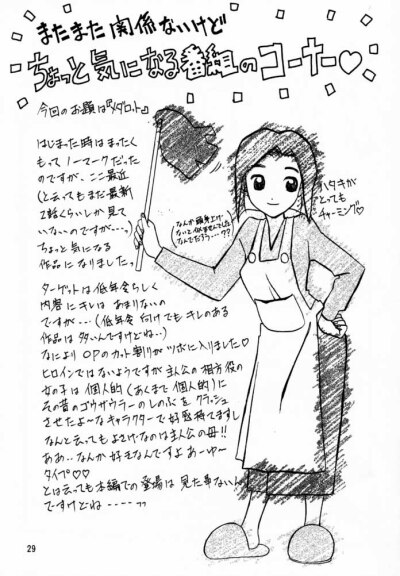 またまた関係ないけど
ちょっと気になる番組のコーナー♡
今回のお題は『メダロット』
はじまった時はまったく
もってノーマークだった
のですが、ここ最近
(と云ってもまだ最新
2話くらいしか見て
いないのですが…)
ちょっと気になる
作品になりましたっ
ターゲットは低年令らしく
内容にキレはあまりないの
ですが…(低年令向けでもキレのある
作品は多いんですけどね…)
なによりOPのカット割りがツボに入りました♡
ヒロインではないようですが主人公の相方役の
女の子は個人的(あくまで個人的)に
その昔のゴウザウラーのしのぶをクラッシュ
させたよ〜なキャラクターで好感持てますし
なんと云ってもよさげなのは主人公の母!!
ああ…なんか好きなんですよあーゆー
タイプ♡♡
とは云っても本編での登場は見た事ないん
ですけどね----
なんか頭身上げ
ないと似ませんでした
なんでだろう…??
ハタキが
とっても
チャーミング♡
29